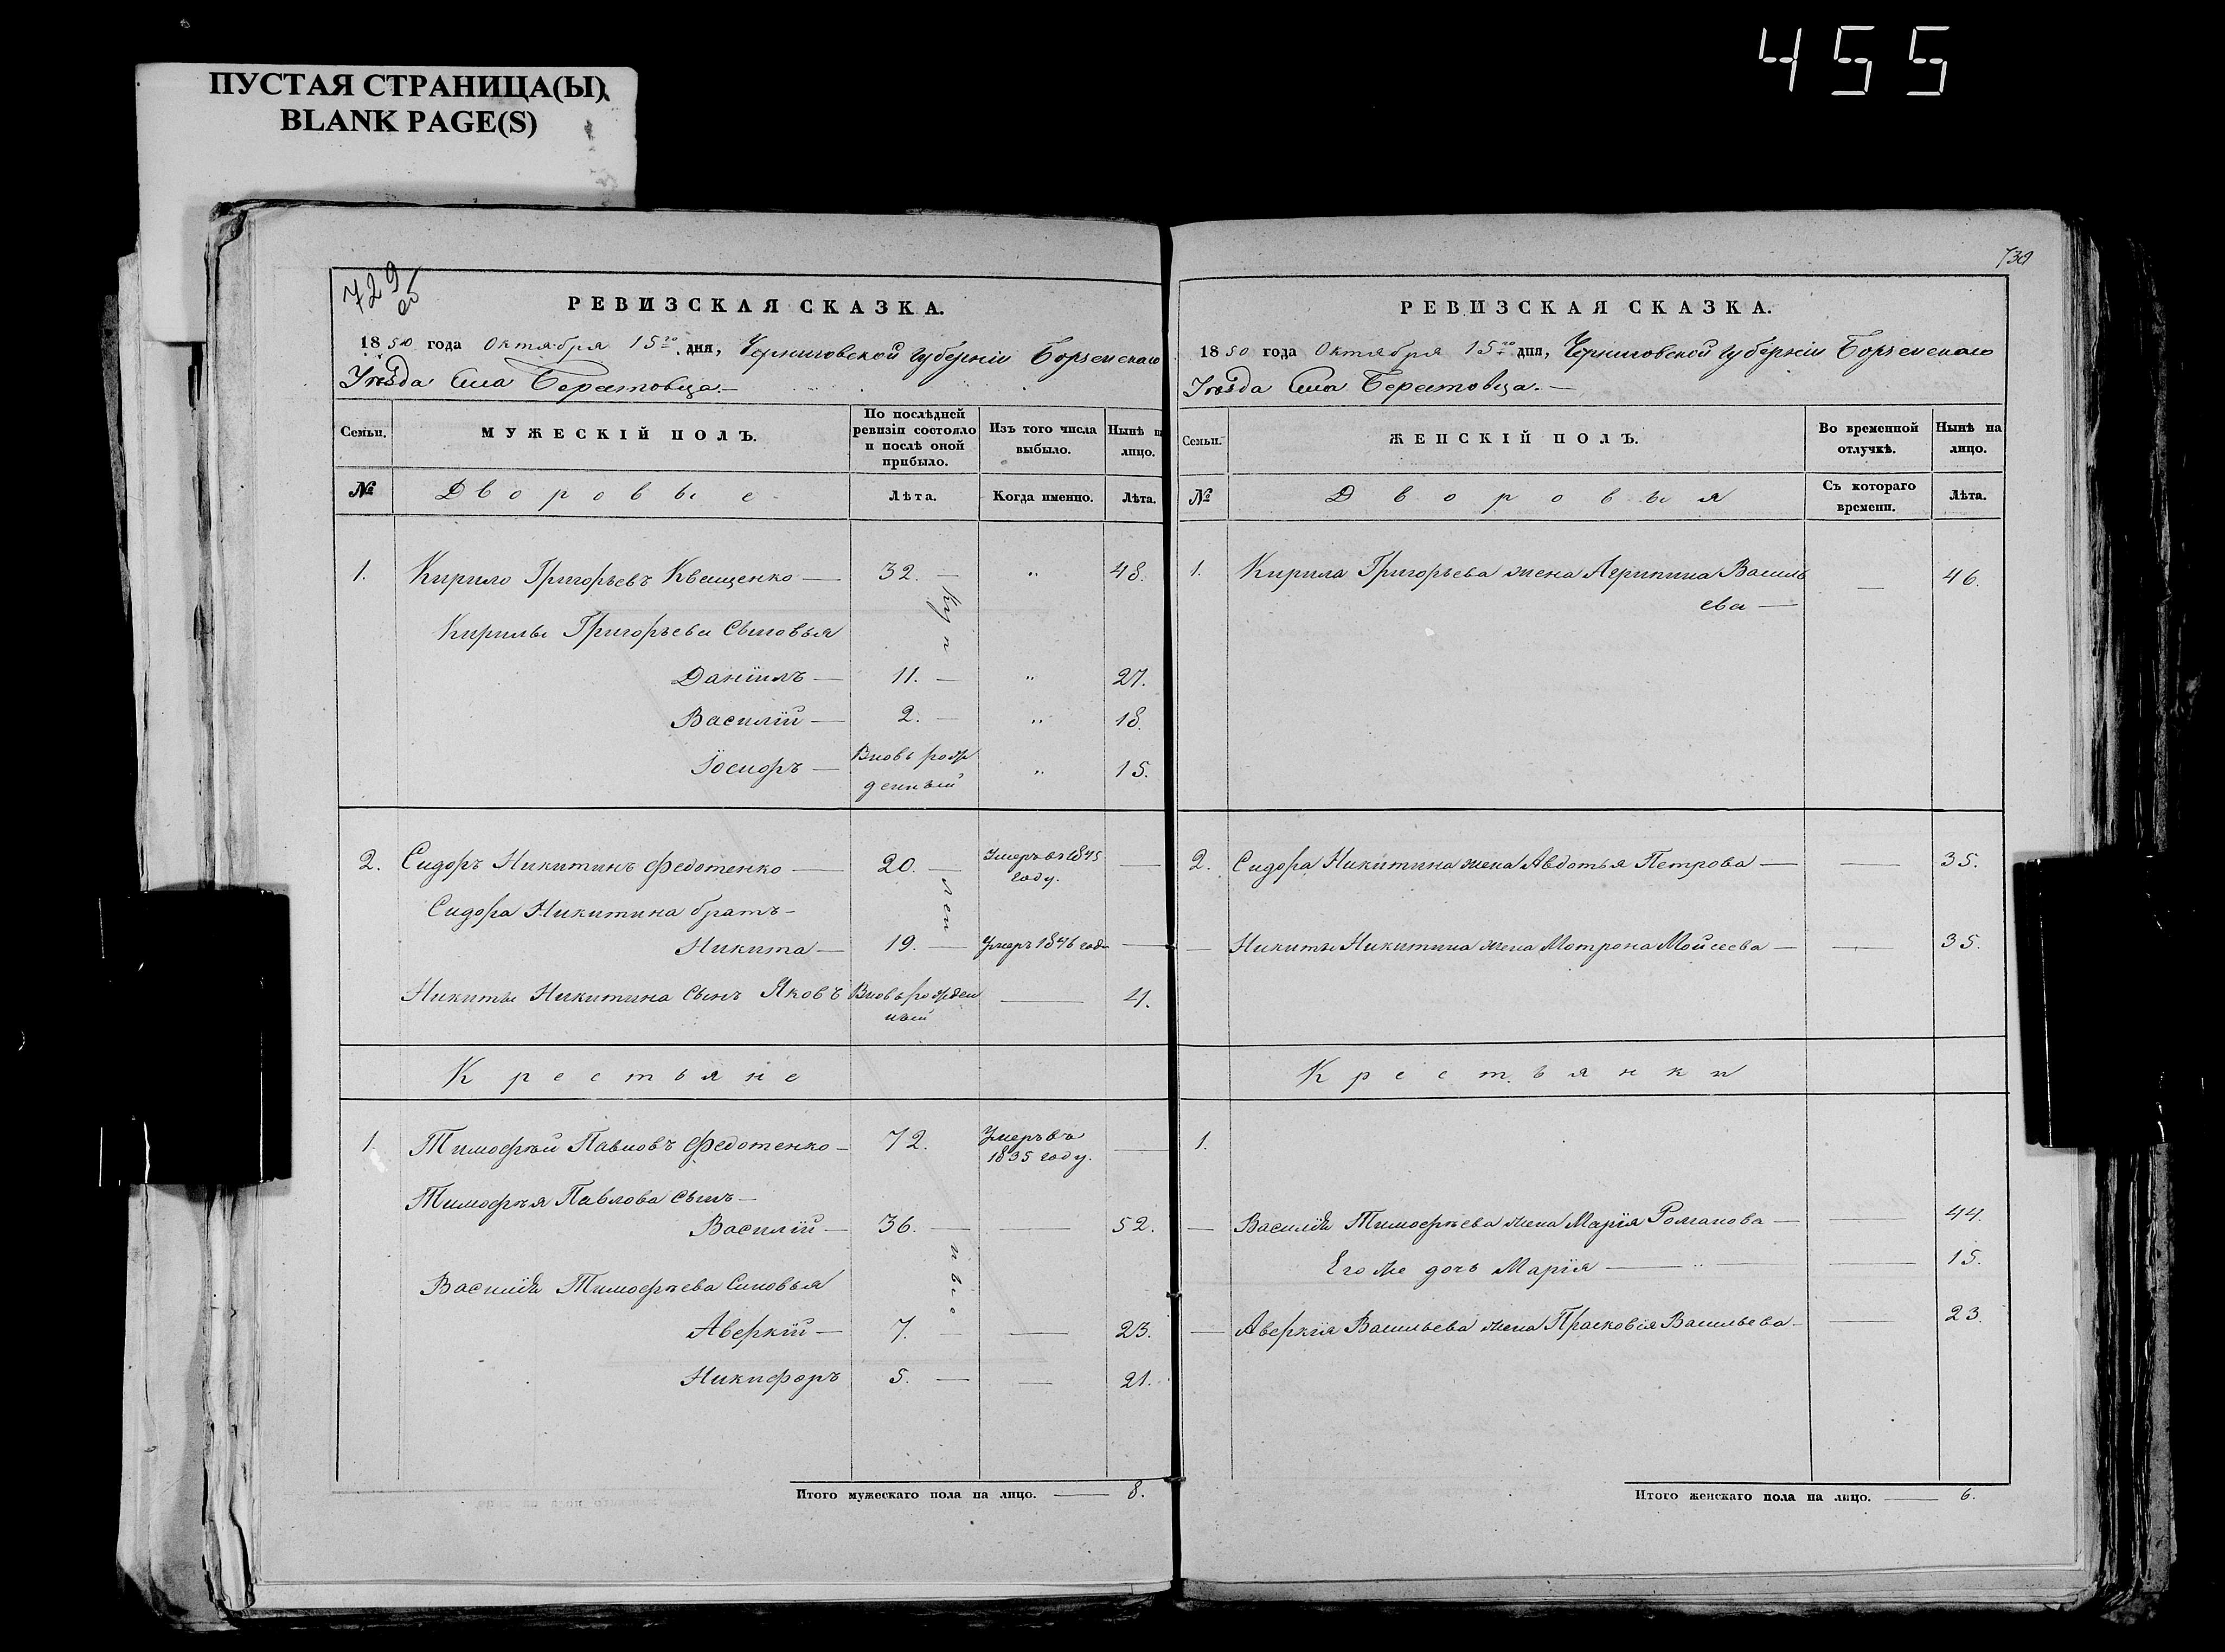 455
ПУСТАЯ СТРАНИЦА(Ы)
BLANK PAGE(S)
729
об
РЕВИЗСКАЯ СКАЗКА.
1850 года Октября 15го дня, Черниговской губерніи Борзенскаго
Уѣзда Села Берестовца.—
Семьи.
МУЖЕСКІЙ ПОЛЪ.
По послѣдней ревизіи состояло и послѣ оной прибыло.
Изъ того числа выбыло.
Нынѣ н лицо.
№
Дворовые
Лѣта.
Когда именно.
Лѣта.
1. Кирило Григорьевъ Кващенко — 32. — „ 48.
Кирилы Григорьева Сыновья
Даніилъ — 11. — „ 27.
Василій — 2. — „ 18.
Іосифъ — Вновь рож „ 15.
денный
2. Сидоръ Никитинъ Федотенко — 20. — Умеръ въ 1845 —
году.
Сидора Никитина братъ —
Никита — 19. — Умеръ 1846 года —
Никиты Никитина Сынъ Яковъ Вновь рожден — 4.
ный
Крестьяне
1. Тимофѣй Павловъ Федотенко — 72. Умеръ въ —
1835 году.
Тимофѣя Павлова Сынъ —
Василій — 36. — — 52.
Василія Тимофѣева Сыновья
Аверкій — 7. — 23.
Никифоръ 5. — — 21.
Итого мужескаго пола на лицо. — 8.
730
РЕВИЗСКАЯ СКАЗКА.
1850 года Октября 15го дня, Черниговской губерніи Борзенскаго
Уѣзда Села Берестовца. —
Семьи.
ЖЕНСКІЙ ПОЛЪ.
Во временной отлучкѣ.
Нынѣ на лицо.
№
Дворовыя
Съ котораго времени.
Лѣта.
1. Кирила Григорьева жена Агрипина Василь — 46.
ева —
2. Сидора Никитина жена Авдотья Петрова — — 35.
— Никиты Никитина жена Мотрона Мойсеева — — 35.
Крестьянки
1.
— Василія Тимофѣева жена Марія Романова — — 44.
Его же дочь Марія — „ — 15.
— Аверкія Васильева жена Прасковія Васильева — — 23.
Итого женскаго пола на лицо. — 6.